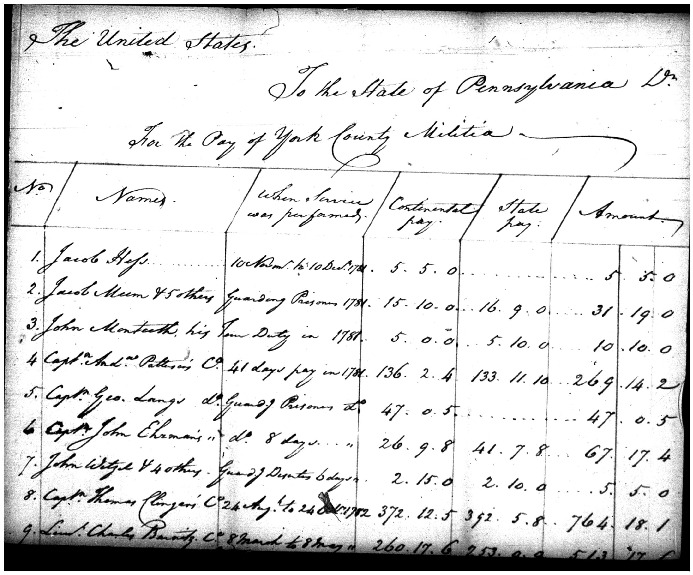 The United States.
To the State of Pennsylvania Dr.
For the Pay of York County Militia
No. Names. When Service was performed. Continental pay. State pay. Amount.
1. Jacob Hess 10 Novmr. to 10 Decr. 1781. 5. 5. 0 5 5. 0
2. Jacob Mum & 5 others Guarding Prisoners 1781. 15. 10. 0 16. 9. 0 31. 19. 0
3. John Monteeth his Tour Duty in 1781. 5. 0. 0 5. 10. 0 10. 10. 0
4 Captn. Andw. Pattersons Co. 41 days pay in 1781. 136. 2. 4 133. 11. 10 269. 14. 2
5. Captn. Geo. Langs do. Guardg Prisoners do. 47. 0. 5 47. 0. 5
6 Captn. John Ehrmans " do. 8 days " 26. 9. 8 41. 7. 8 67. 17. 4
7. John Wetzel & 4 others. Guardg 6 days " 2. 15. 0 2. 10. 0 5. 5. 0
8. Captn. Thomas Clingans Co. 24 Augt. to 24 1782 372. 12. 5 5. 8 764. 18. 1
9. Lieut. Charles Co. 8 March to 8 May " 260. 17. 6